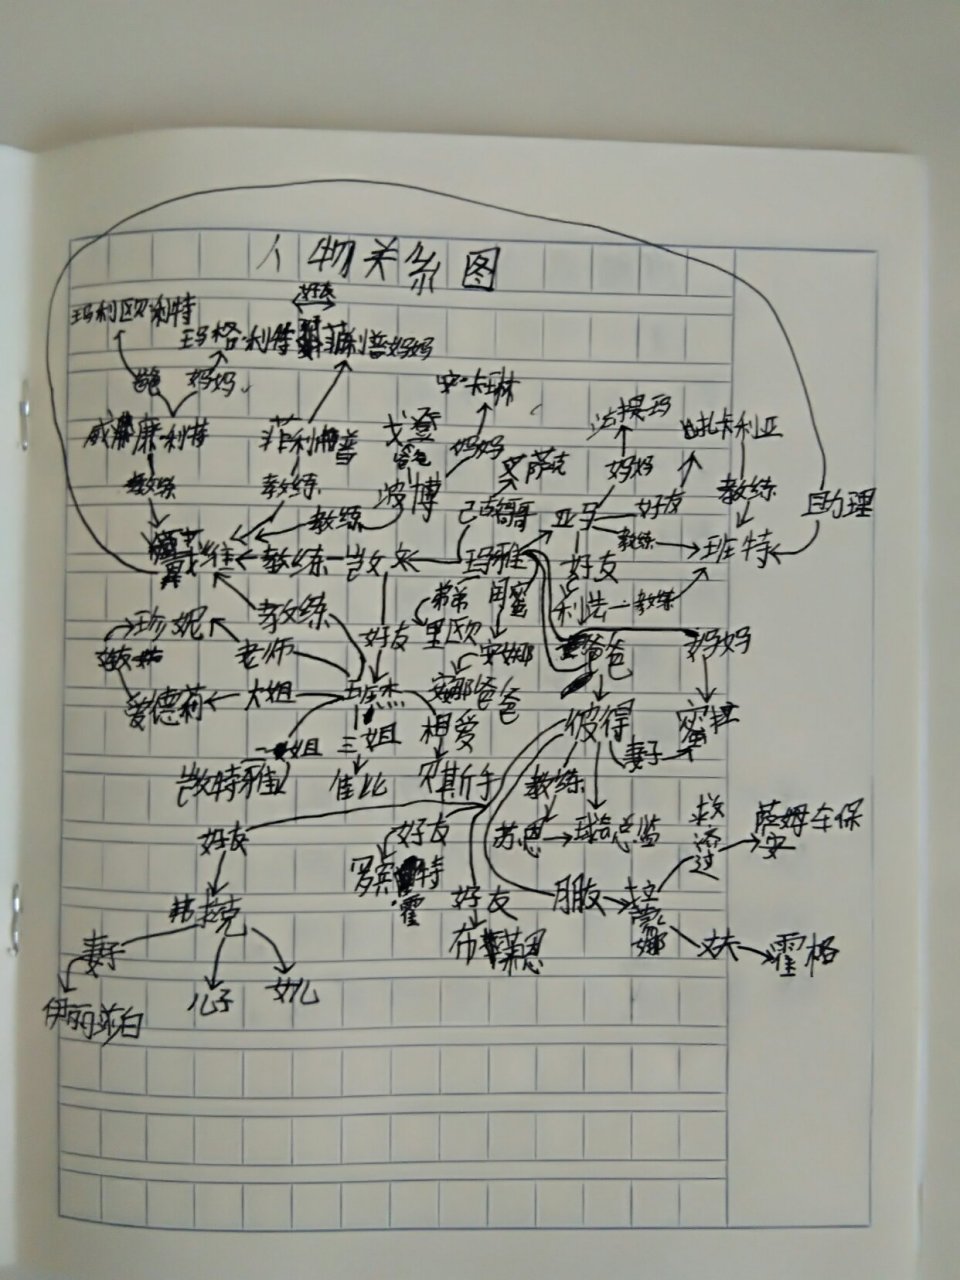 人物关系图
好友
玛利欧·利特
玛格·利特
菲利普妈妈
妈妈
安·卡琳
法提玛
扎卡利亚
威廉·利特
菲利普
戈登
爸爸
妈妈
艾萨克
妈妈
教练
教练
教练
波博
哥哥
亚当
好友
教练
助理
戴维
教练
凯文
玛雅
教练
班特
好友
利法
教练
弟弟
闺蜜
珍妮
教练
好友
里欧
安娜
爸爸
妈妈
老师
爱德莉
大姐
班杰
安娜爸爸
彼得
蜜拉
二姐
三姐
相爱
妻子
凯特雅
佳比
贝斯手
教练
救济过
萨姆车保安
好友
好友
苏恩
总监
罗宾·霍特
好友
朋友
拉蒙娜
弗拉克
布莱恩
丈夫
霍格
妻子
儿子
女儿
伊丽莎白